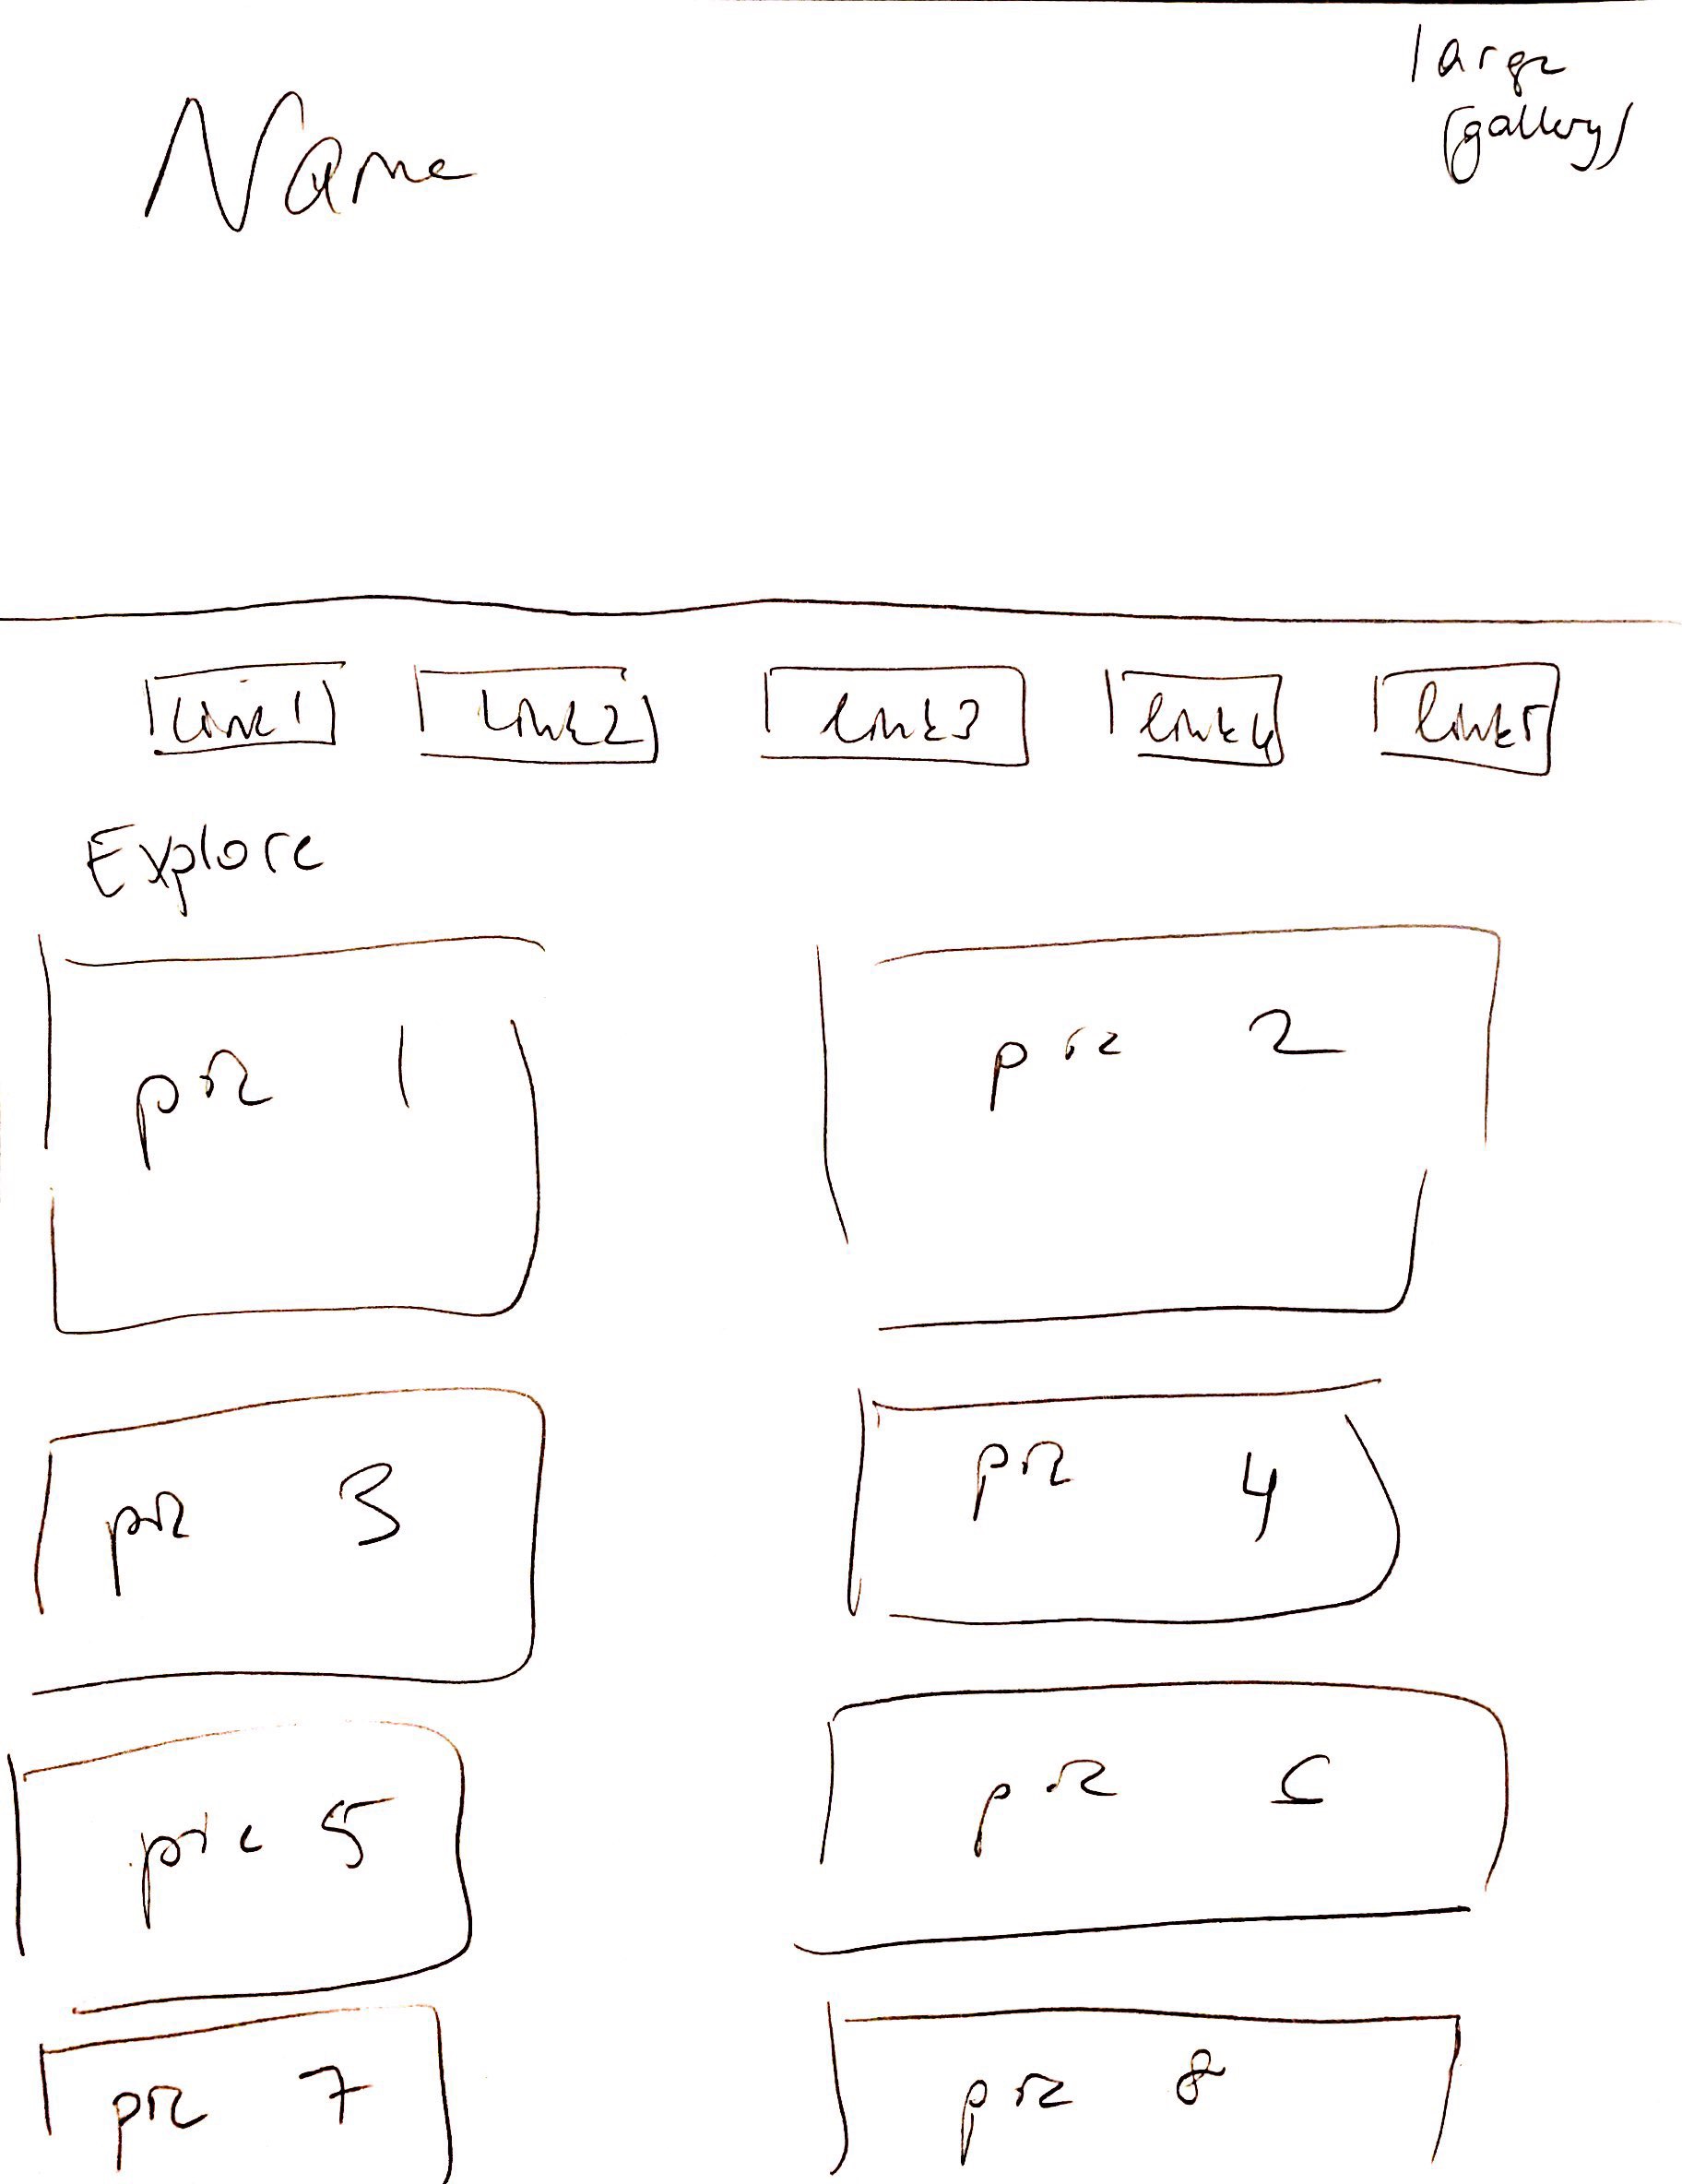 large
Name
(gallery)
Link 1 Link2 link3 link4 link5
Explore
pic 1 pic 2
pic 3 pic 4
pic 5 pic 6
pic 7 pic 8